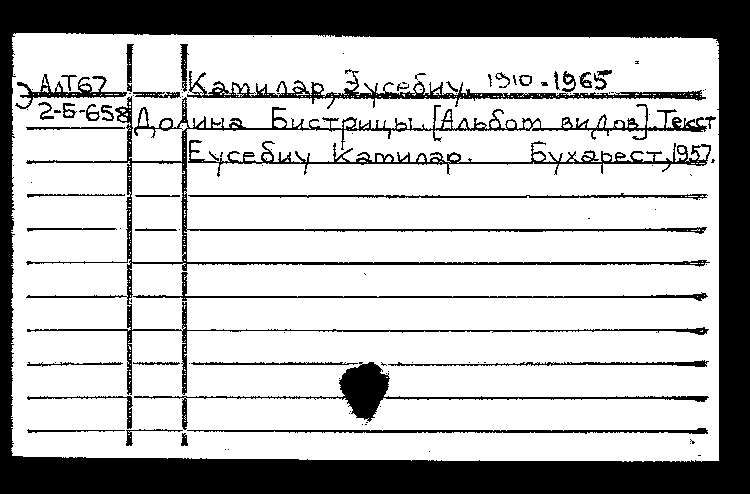 Э АлТ67 Камилар, Эусебиу. 1910-1965
2-5-658 Долина Бистрицы. [Альбом видов]. Текст
Еусебиу Камилар. Бухарест, 1957.